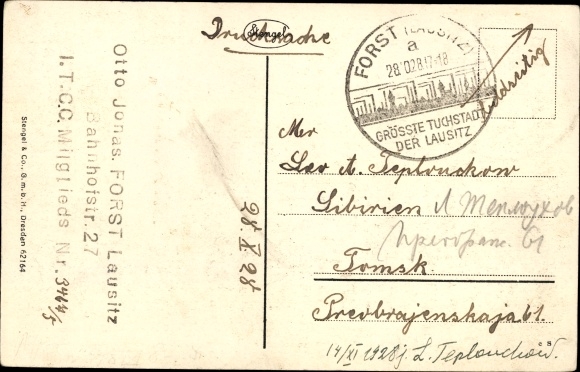 Drucksache
Stengel
bildseitig
FORST (LAUSITZ)
a
28.10.28.17-18
GRÖSSTE TUCHSTADT
DER LAUSITZ
Otto Jonas. FORST Lausitz
Bahnhofstr. 27
I.T.C.C. Mitglieds Nr. 3444/5
28. X 28
Stengel & Co., G. m. b. H., Dresden 62164
Mer
Leo A. Teplouckow
Sibirien Л Теплоухов
Преображ. 61
Tomsk
Preobrajenskaja 61.
14/XI 1928 j. L. Teplouchow.